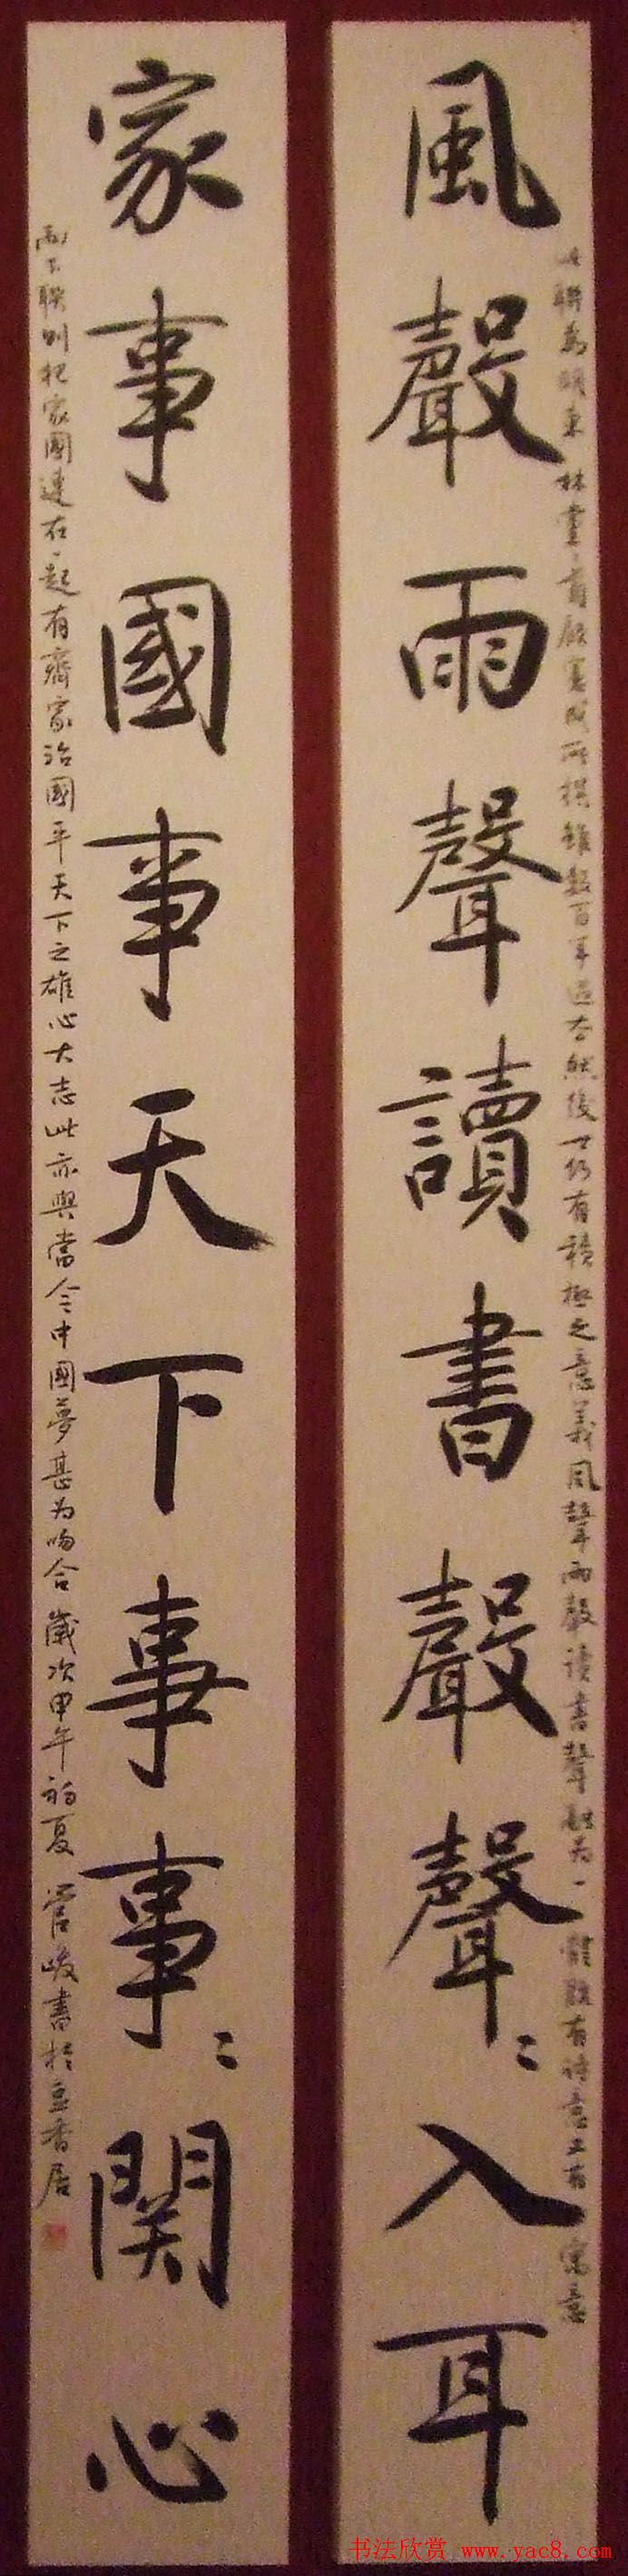 此聯為明東林黨首顧憲成所撰雖數百年過去然後世仍有積極之意義風聲雨聲讀書聲融為一體既有詩意又有寓意
風聲雨聲讀書聲聲〻入耳
家事國事天下事事〻関心
而下聯則把家國連在一起有齊家治國平天下之雄心大志此亦與當今中國夢甚为吻合歲次甲午初夏 管峻書於香居
书法欣赏 www.yac8.com